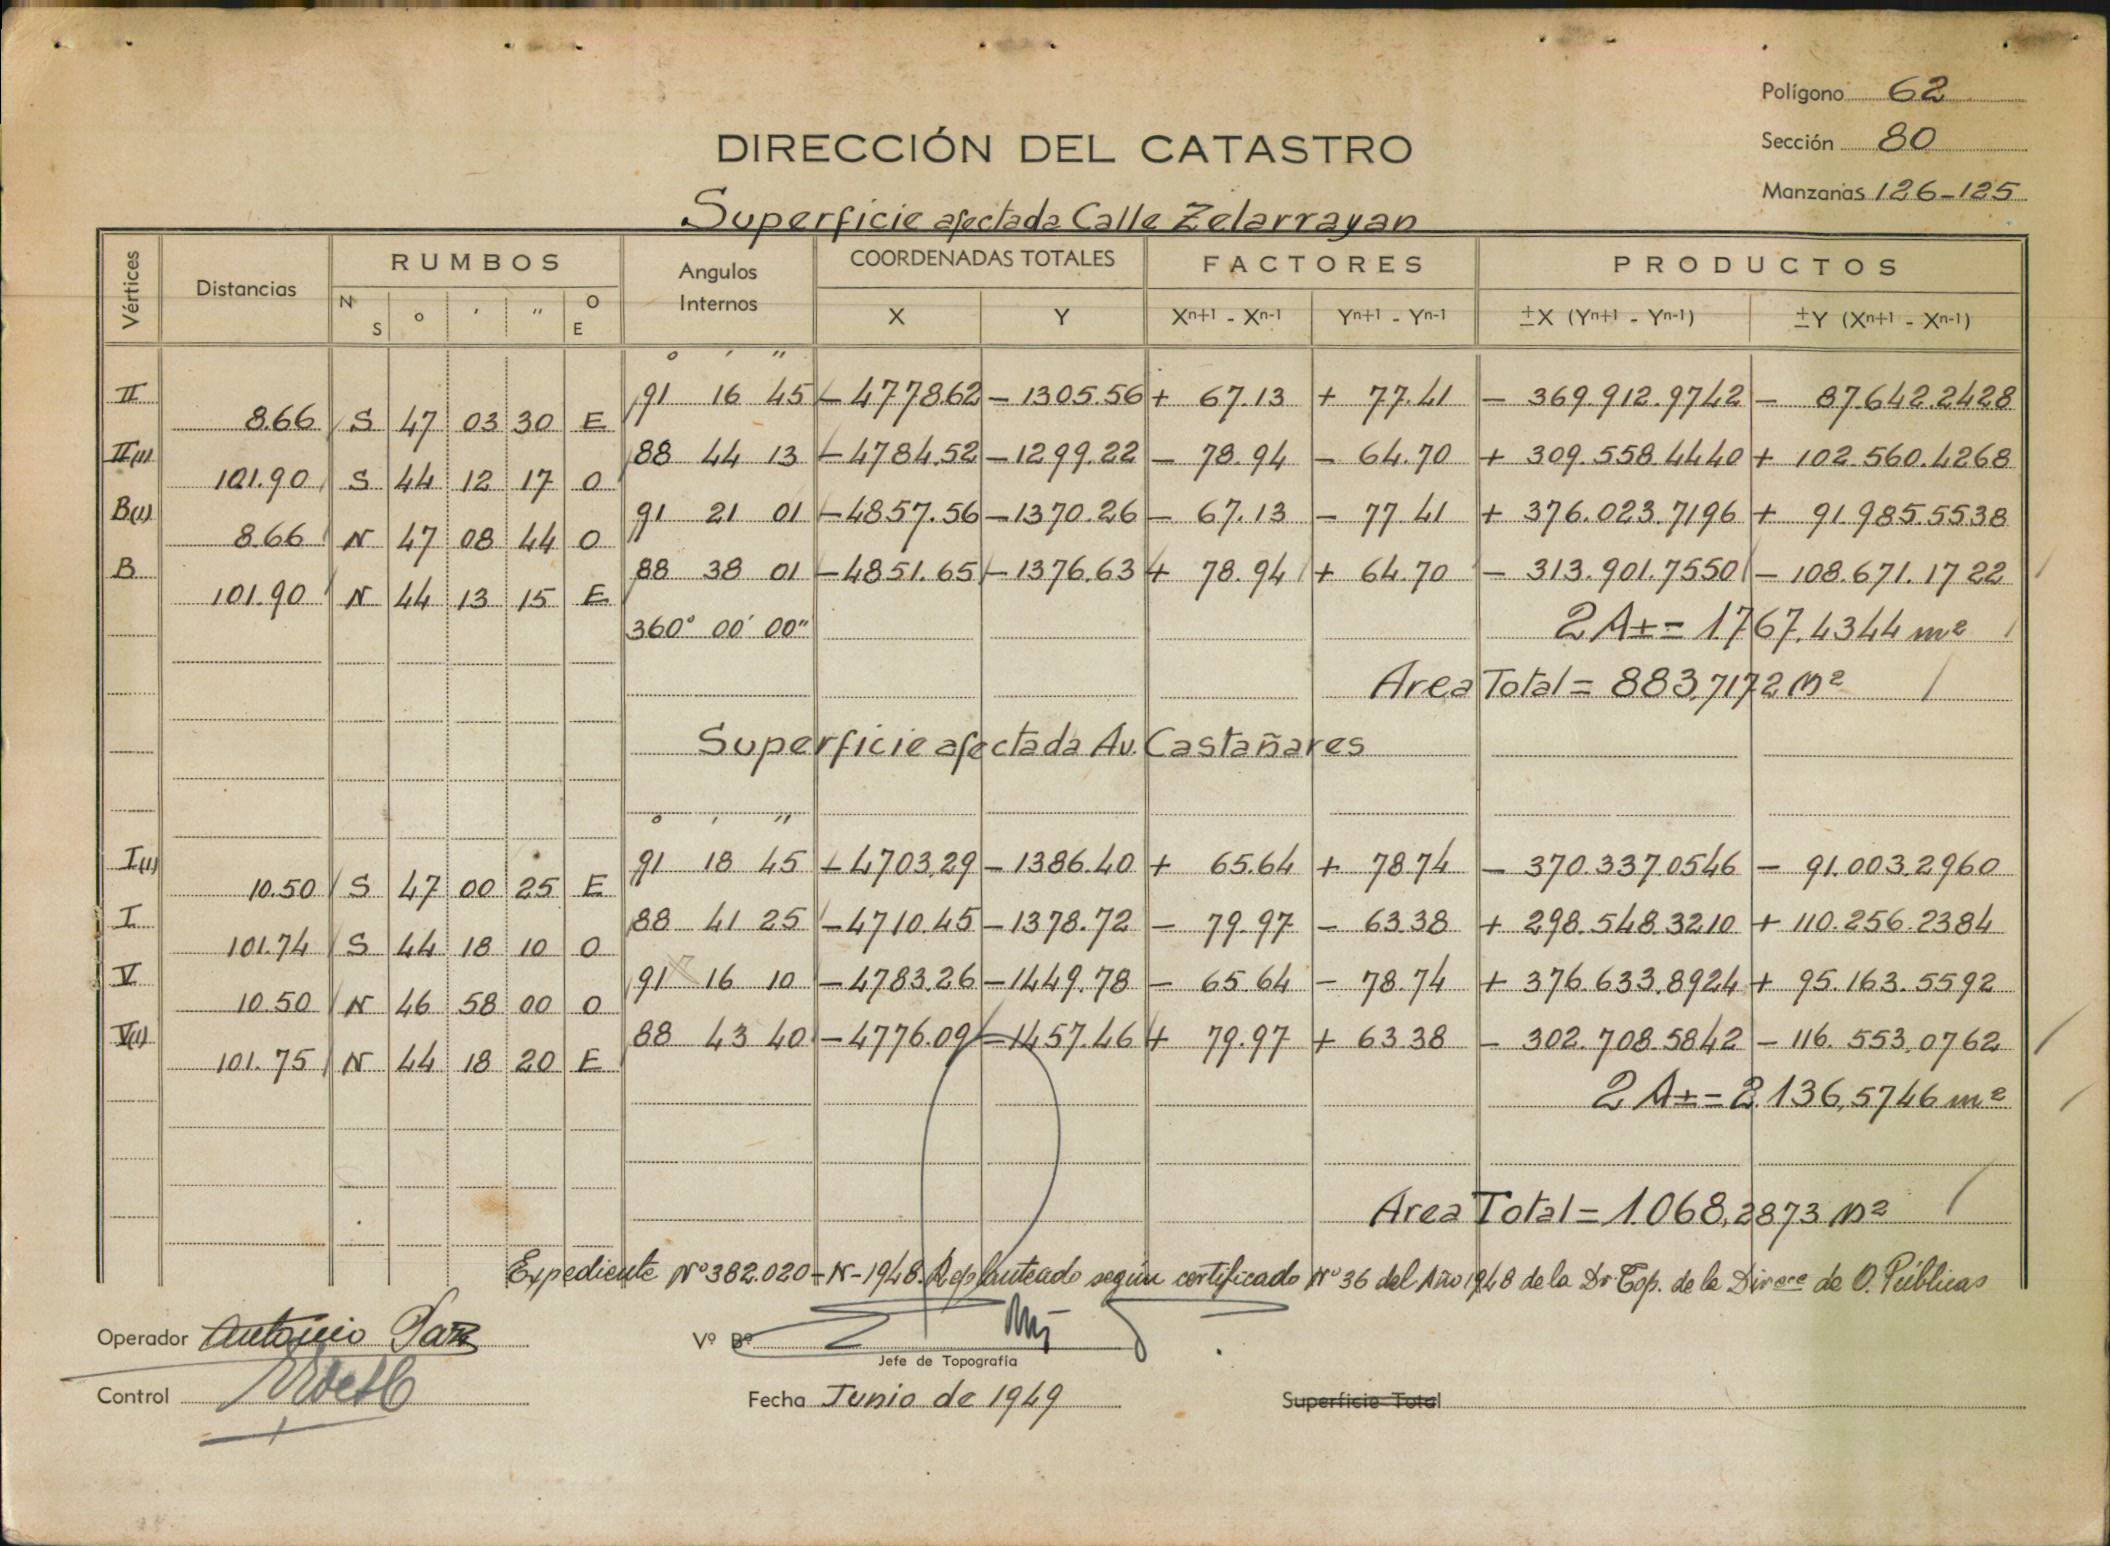 Polígono 62
DIRECCIÓN DEL CATASTRO
Sección 80
Manzanas 126-125
Superficie afectada Calle Zelarrayan
Vértices Distancias RUMBOS Angulos Internos COORDENADAS TOTALES FACTORES PRODUCTOS
N S o ' " O E X Y Xn+1 - Xn-1 Yn+1 - Yn-1 ±X (Yn+1 - Yn-1) ±Y (Xn+1 - Xn-1)
o ' "
II 91 16 45 -4778.62 -1305.56 + 67.13 + 77.41 - 369.912.9742 - 87.642.2428
8.66 S 47 03 30 E
II(1) 88 44 13 -4784.52 -1299.22 - 78.94 - 64.70 + 309.558.4440 + 102.560.4268
101.90 S 44 12 17 O
B(1) 91 21 01 -4857.56 -1370.26 - 67.13 - 77.41 + 376.023.7196 + 91.985.5538
8.66 N 47 08 44 O
B 88 38 01 -4851.65 -1376.63 + 78.94 + 64.70 - 313.901.7550 - 108.671.1722
101.90 N 44 13 15 E
360° 00' 00" 2A± = 1767,4344 m²
Area Total = 883,7172 m²
Superficie afectada Av. Castañares
o ' "
I(1) 91 18 45 -4703.29 -1386.40 + 65.64 + 78.74 - 370.337.0546 - 91.003.2960
10.50 S 47 00 25 E
I 88 41 25 -4710.45 -1378.72 - 79.97 - 63.38 + 298.548.3210 + 110.256.2384
101.74 S 44 18 10 O
V 91 16 10 -4783.26 -1449.78 - 65.64 - 78.74 + 376.633.8924 + 95.163.5592
10.50 N 46 58 00 O
V(1) 88 43 40 -4776.09 -1457.46 + 79.97 + 63.38 - 302.708.5842 - 116.553.0762
101.75 N 44 18 20 E
2A± = 2.136,5746 m²
Area Total = 1.068,2873 m²
Expediente Nº 382.020-N-1948. Replanteado según certificado Nº 36 del Año 1948 de la Dr. Top. de la Direcc de O. Públicas
Operador Antonio Paz
Vº Bº
Jefe de Topografía
Control
Fecha Junio de 1949
Superficie Total